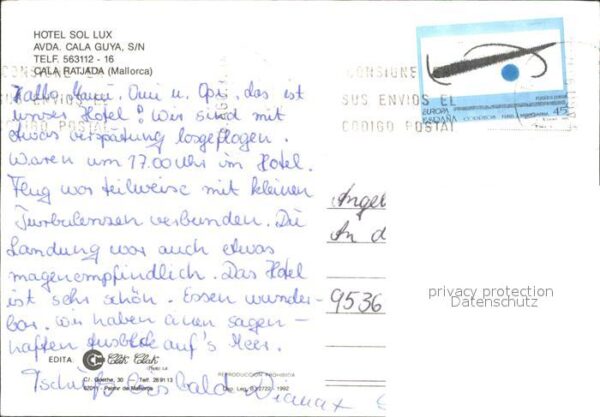 HOTEL SOL LUX
AVDA. CALA GUYA, S/N
TELF. 563112 - 16
CALA RATJADA (Mallorca)
Hallo Mami, Omi u. Opi, das ist
unser Hotel! Wir sind mit
etwas verspätung losgeflogen.
Waren um 17.00 Uhr im Hotel.
Flug war teilweise mit kleinen
Turbulenzen verbunden. Die
Landung war auch etwas
magenempfindlich. Das Hotel
ist sehr schön. Essen wunder-
bar. Wir haben einen sagen-
haften Ausblick auf's Meer.
Tschüß bis bald Diana +
EDITA:
Clik Clak
C/. Goethe, 30 Telf. 26 91 13
07011 - Palma de Mallorca
REPRODUCCION PROHIBIDA
Dep. Leg. 2722 - 1992
CONSIGNE EN
SUS ENVIOS EL
CODIGO POSTAL
EUROPA
ESPAÑA CORREOS
45
Angel
An d
9536
privacy protection
Datenschutz